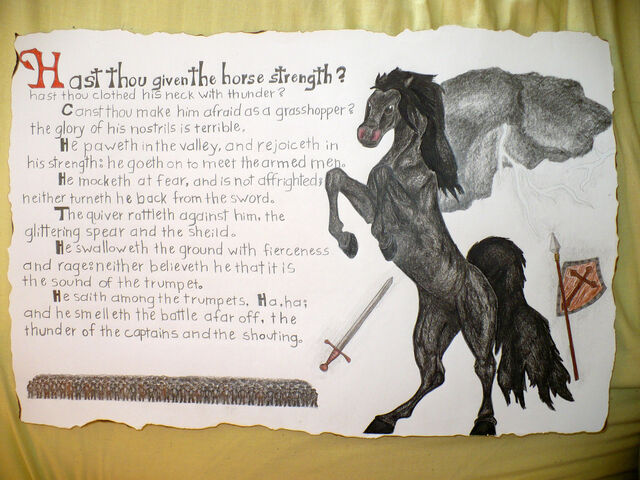 Hast thou given the horse strength?
hast thou clothed his neck with thunder?
Canst thou make him afraid as a grasshopper?
the glory of his nostrils is terrible.
He paweth in the valley, and rejoiceth in
his strength: he goeth on to meet the armed men.
He mocketh at fear, and is not affrighted;
neither turneth he back from the sword.
The quiver rattleth against him, the
glittering spear and the sheild.
He swalloweth the ground with fierceness
and rage: neither believeth he that it is
the sound of the trumpet.
He saith among the trumpets, Ha, ha;
and he smelleth the battle afar off, the
thunder of the captains and the shouting.